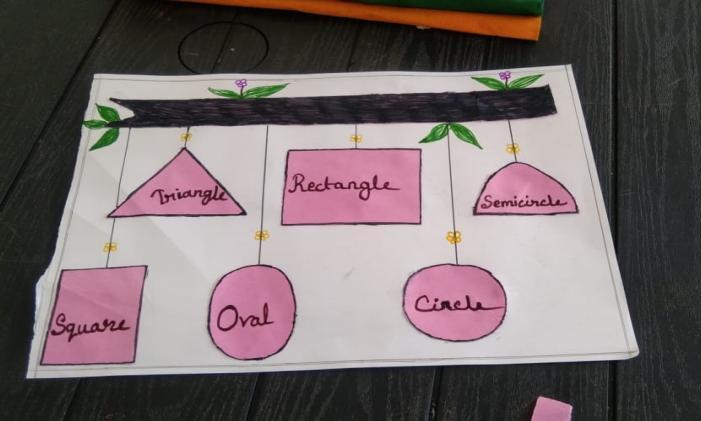 Triangle
Rectangle
Semicircle
Square
Oval
Circle